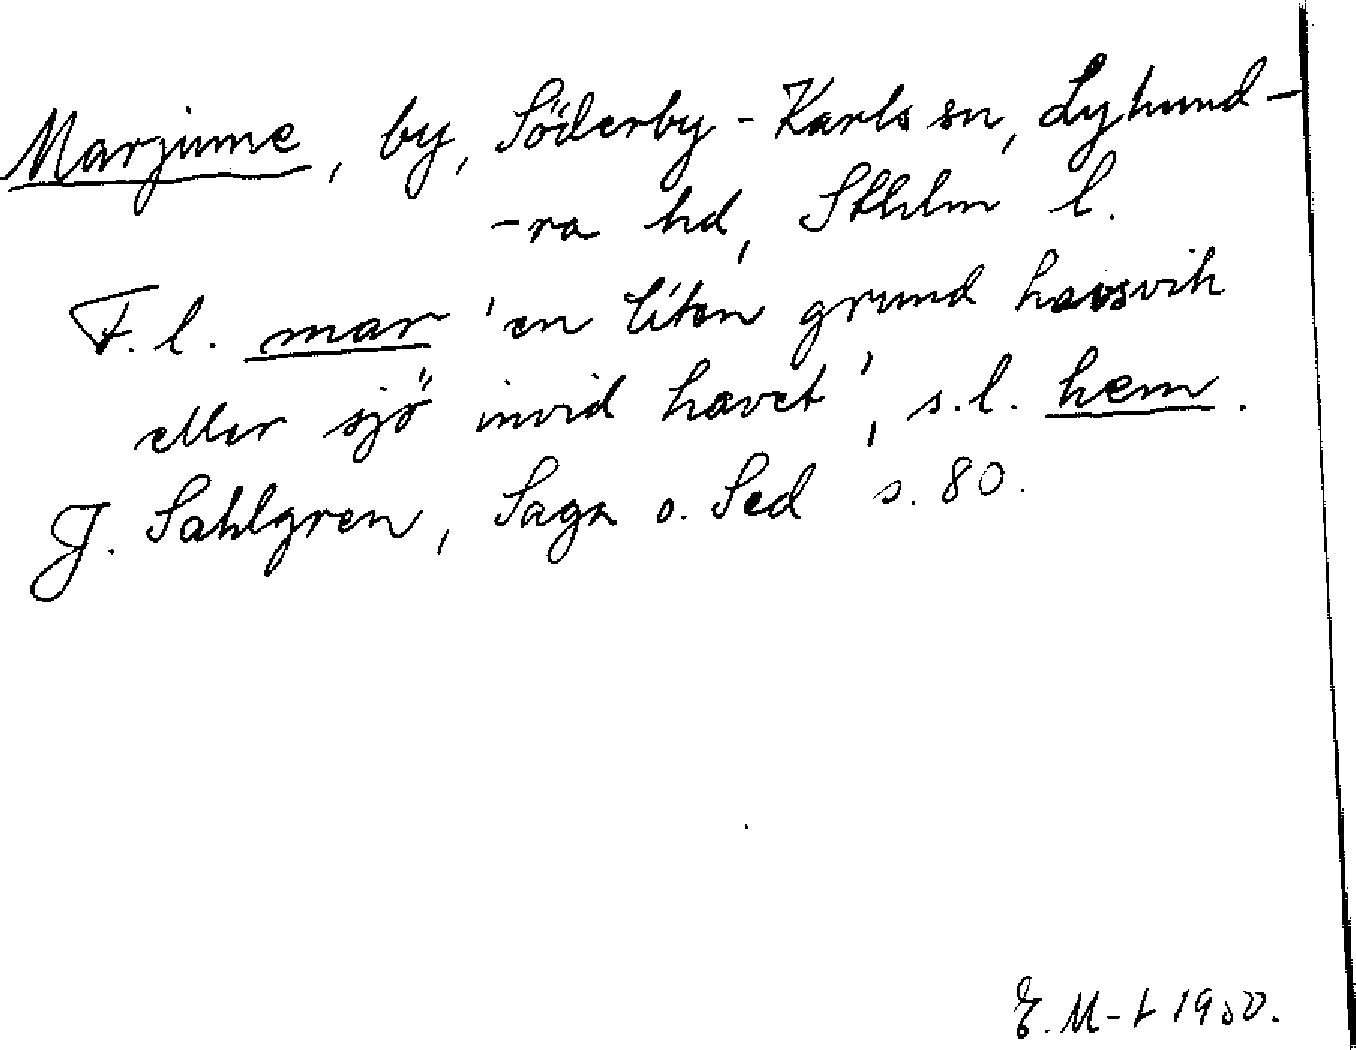 Marjume, by, Söderby-Karls sn, Lyhund-
-ra hd, Sthlm l.
F.l. mar 'en liten grund havsvik
eller sjö invid havet', s.l. hem.
J. Sahlgren, Saga o. Sed s. 80.
E. M-t 1950.